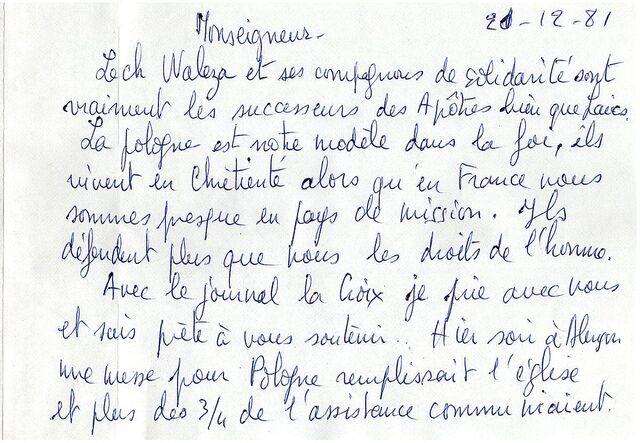 Monseigneur - 21-12-81
Lech Waleza et ses compagnons de Solidarité sont
vraiment les successeurs des Apôtres bien que laïcs.
La pologne est notre modèle dans la foi, ils
vivent en Chrétienté alors qu'en France nous
sommes presque en pays de mission. Ils
défendent plus que nous les droits de l'homme.
Avec le journal la Croix je prie avec vous
et suis prête à vous soutenir.. Hier soir à Alençon
une messe pour Pologne remplissait l'église
et plus des 3/4 de l'assistance communiaient.